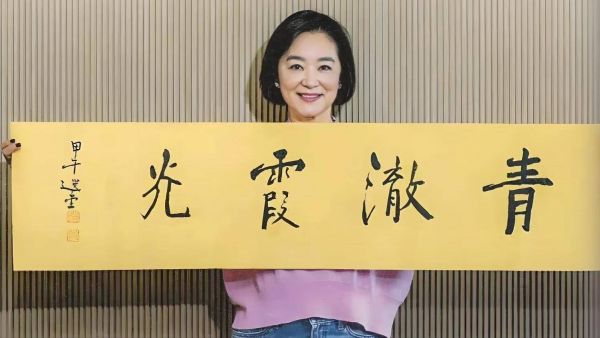 青澈霞光
甲午選堂